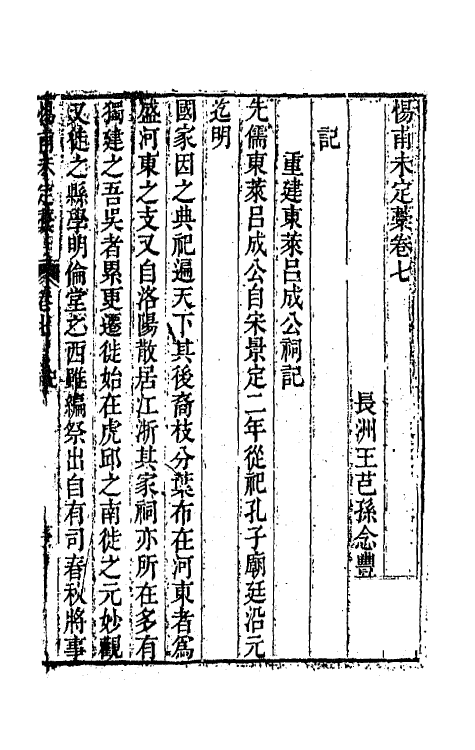 惕甫未定藁卷七
長洲王芑孫念豐
記
重建東萊呂成公祠記
先儒東萊呂成公自宋景定二年從祀孔子廟廷沿元
迄明
國家因之典祀遍天下其後裔枝分葉布在河東者爲
盛河東之支又自洛陽散居江浙其家祠亦所在多有
獨建之吾吳者累更遷徙始在虎邱之南徙之元妙觀
又徙之縣學明倫堂之西雖編祭出自有司春秋將事
惕甫未定藁 卷七 記